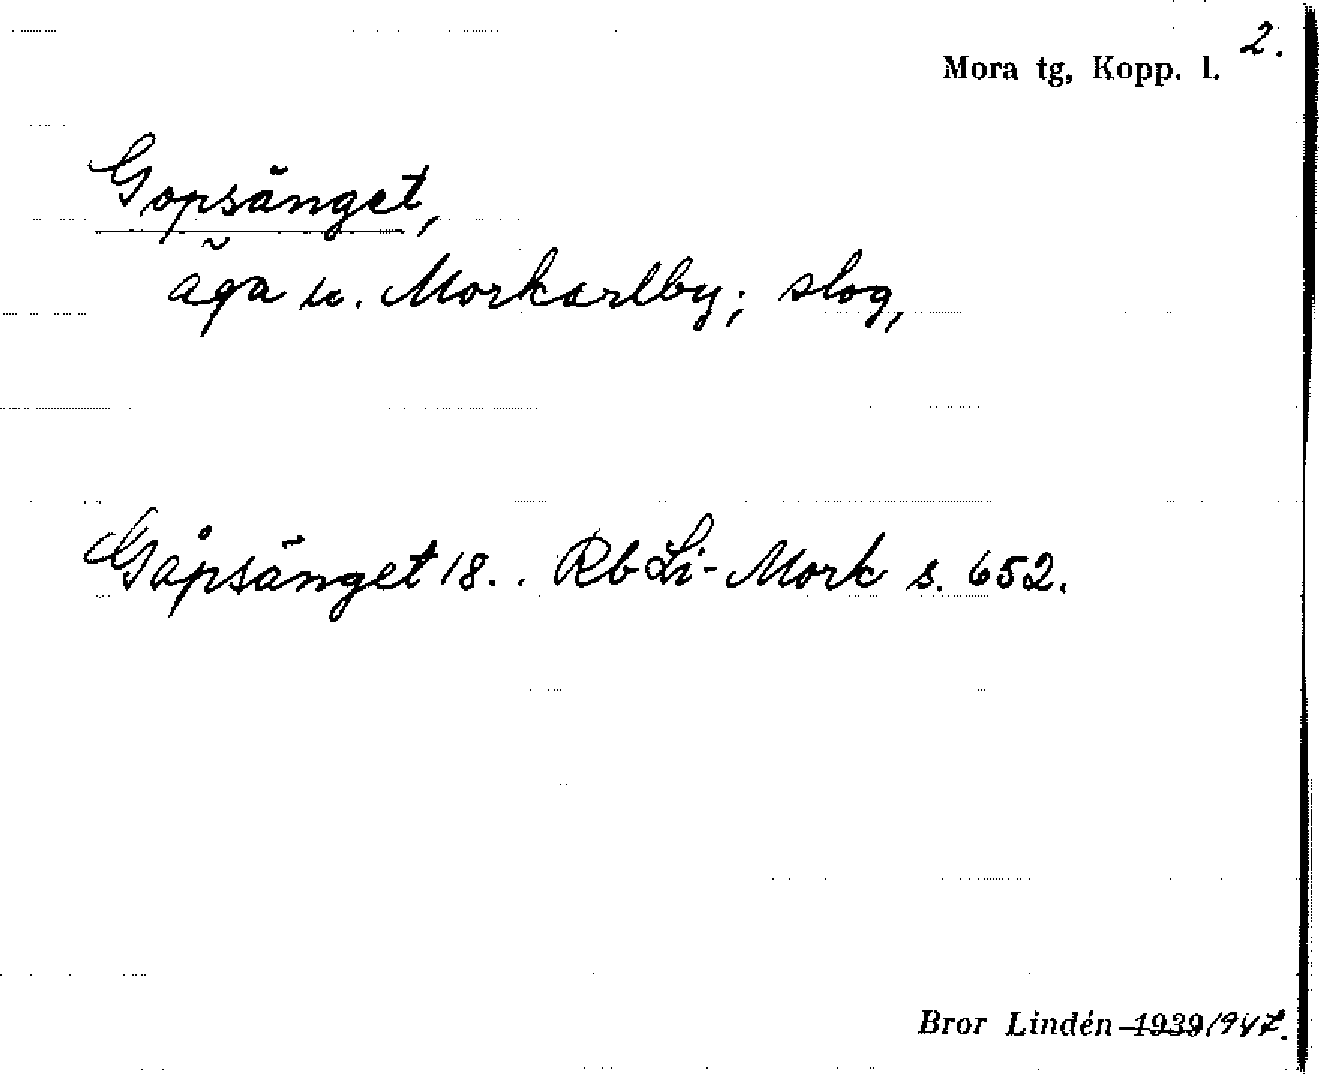 2.
Mora tg, Kopp. l.
Gopsänget,
äga u. Morkarlby; slog,
Gåpsänget 18.. Rb Li-Mork s. 652.
Bror Lindén 1939 1947.